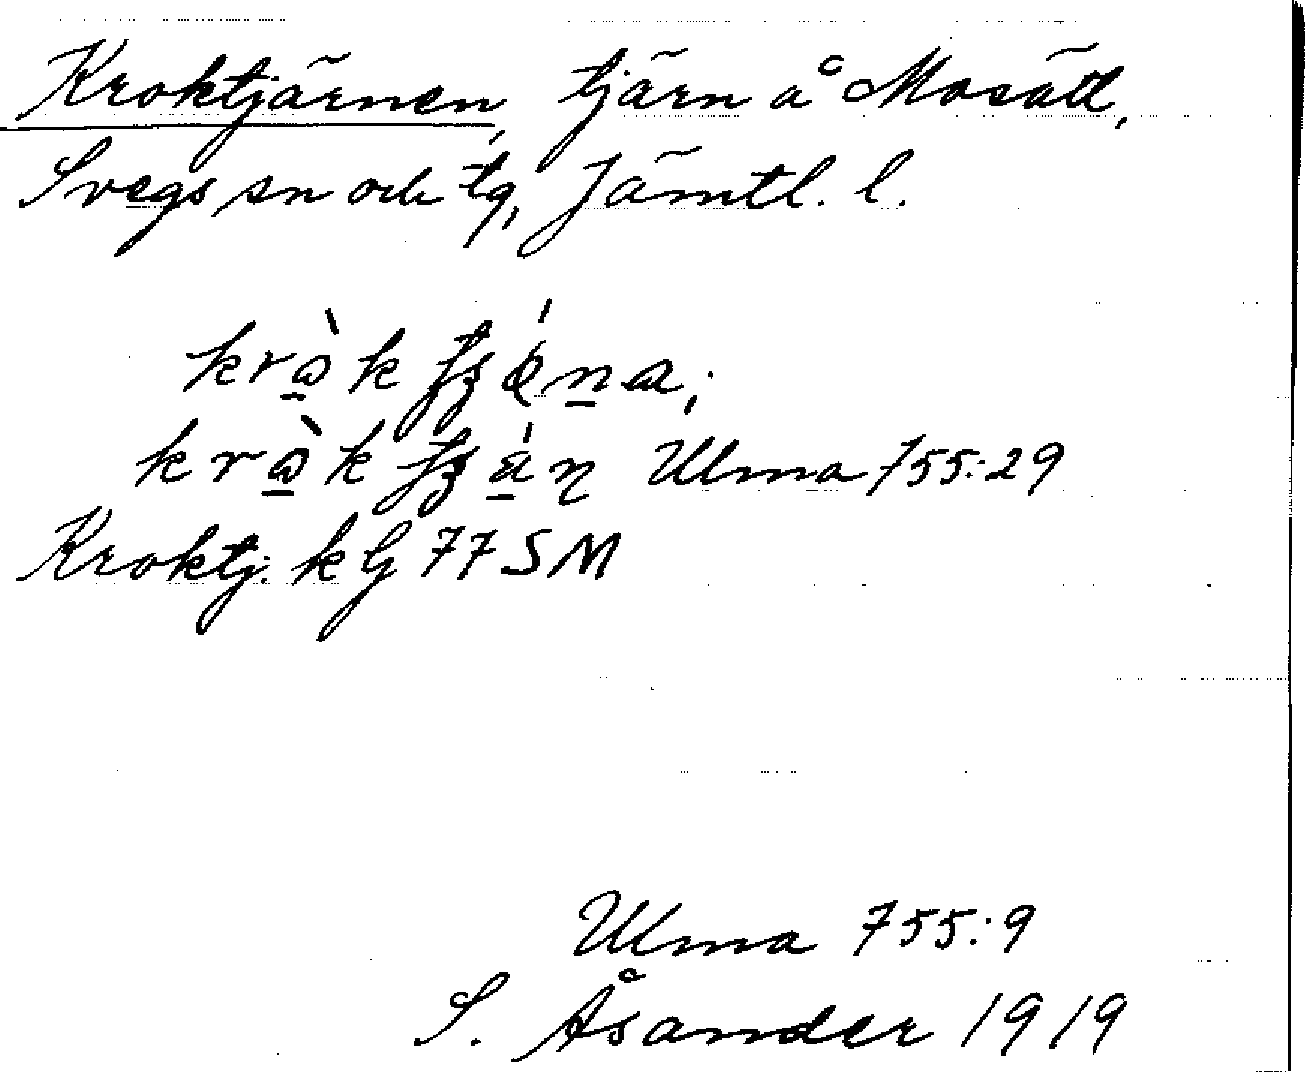 Kroktjärnen, tjärn å Mosätt,
Svegs sn och tg, Jämtl. l.
Ulma 755:29
Kroktj. k G 77 SM
Ulma 755:9
S. Åsander 1919